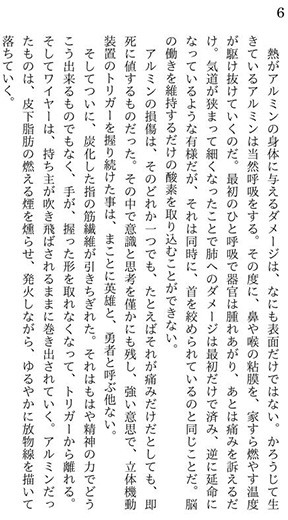 6
　熱がアルミンの身体に与えるダメージは、なにも表面だけではない。かろうじて生
きているアルミンは当然呼吸をする。その度に、鼻や喉の粘膜を、家すら燃やす温度
が駆け抜けていくのだ。最初のひと呼吸で器官は腫れあがり、あとは痛みを訴えるだ
け。気道が狭まって細くなったことで肺へのダメージは最初だけで済み、逆に延命に
なっているような有様だが、それは同時に、首を絞められているのと同じことだ。脳
の働きを維持するだけの酸素を取り込むことができない。
　アルミンの損傷は、そのどれか一つでも、たとえばそれが痛みだけだとしても、即
死に値するものだった。その中で意識と思考を僅かにも残し、強い意思で、立体機動
装置のトリガーを握り続けた事は、まことに英雄と、勇者と呼ぶ他ない。
　そしてついに、炭化した指の筋繊維が引きちぎれた。それはもはや精神の力でどう
こう出来るものでもなく、手が、握った形を取れなくなって、トリガーから離れる。
そしてワイヤーは、持ち主が吹き飛ばされるままに巻き出されていく。アルミンだっ
たものは、皮下脂肪の燃える煙を燻らせ、発火しながら、ゆるやかに放物線を描いて
落ちていく。